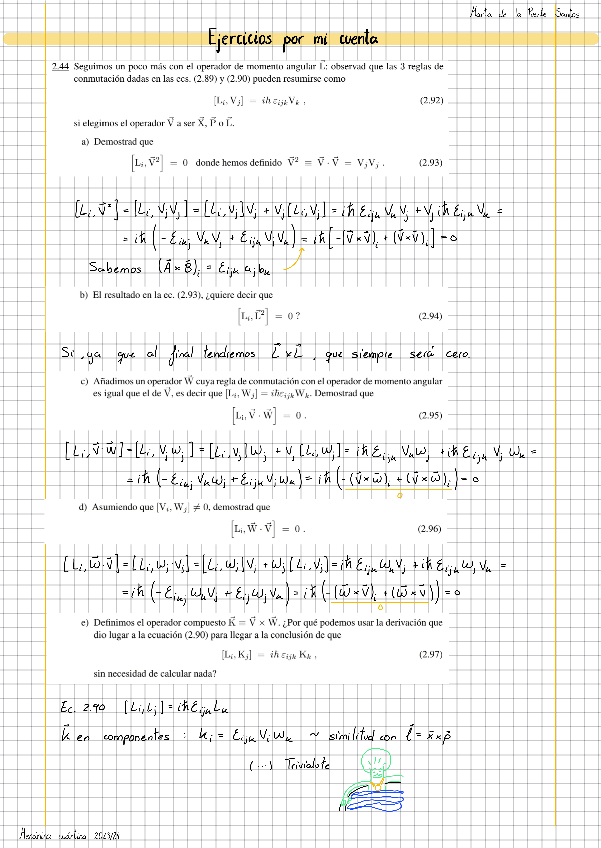 Marta de la Puente Santos
Ejercicios por mi cuenta
2.44 Seguimos un poco más con el operador de momento angular L⃗: observad que las 3 reglas de
conmutación dadas en las ecs. (2.89) y (2.90) pueden resumirse como
[Lᵢ, Vⱼ] = iℏ εᵢⱼₖVₖ , (2.92)
si elegimos el operador V⃗ a ser X⃗, P⃗ o L⃗.
a) Demostrad que
[Lᵢ, V⃗²] = 0 donde hemos definido V⃗² ≡ V⃗ · V⃗ = VⱼVⱼ . (2.93)
[Lᵢ, V⃗²] = [Lᵢ, VⱼVⱼ] = [Lᵢ, Vⱼ]Vⱼ + Vⱼ[Lᵢ, Vⱼ] = iℏ εᵢⱼₖ Vₖ Vⱼ + Vⱼ iℏ εᵢⱼₖ Vₖ =
= iℏ (-εᵢₖⱼ Vₖ Vⱼ + εᵢⱼₖ VⱼVₖ) = iℏ [-(V⃗×V⃗)ᵢ + (V⃗×V⃗)ᵢ] = 0
Sabemos (A⃗×B⃗)ᵢ = εᵢⱼₖ aⱼbₖ
b) El resultado en la ec. (2.93), ¿quiere decir que
[Lᵢ, L⃗²] = 0 ? (2.94)
Sí, ya que al final tendremos L⃗×L⃗, que siempre será cero.
c) Añadimos un operador W⃗ cuya regla de conmutación con el operador de momento angular
es igual que el de V⃗, es decir que [Lᵢ, Wⱼ] = iℏεᵢⱼₖWₖ. Demostrad que
[Lᵢ, V⃗ · W⃗] = 0 . (2.95)
[Lᵢ, V⃗·W⃗] = [Lᵢ, Vⱼ Wⱼ] = [Lᵢ, Vⱼ]Wⱼ + Vⱼ [Lᵢ, Wⱼ] = iℏ εᵢⱼₖ VₖWⱼ + iℏ εᵢⱼₖ Vⱼ Wₖ =
= iℏ (-εᵢₖⱼ VₖWⱼ + εᵢⱼₖ VⱼWₖ) = iℏ (-(V⃗×W⃗)ᵢ + (V⃗×W⃗)ᵢ) = 0
0
d) Asumiendo que [Vᵢ, Wⱼ] ≠ 0, demostrad que
[Lᵢ, W⃗ · V⃗] = 0 . (2.96)
[Lᵢ, W⃗·V⃗] = [Lᵢ, Wⱼ·Vⱼ] = [Lᵢ, Wⱼ]Vⱼ + Wⱼ [Lᵢ, Vⱼ] = iℏ εᵢⱼₖ WₖVⱼ + iℏ εᵢⱼₖ Wⱼ Vₖ =
= iℏ (-εᵢₖⱼ WₖVⱼ + εᵢⱼ WⱼVₖ) = iℏ (-(W⃗×V⃗)ᵢ + (W⃗×V⃗)) = 0
0
e) Definimos el operador compuesto K⃗ = V⃗ × W⃗. ¿Por qué podemos usar la derivación que
dio lugar a la ecuación (2.90) para llegar a la conclusión de que
[Lᵢ, Kⱼ] = iℏ εᵢⱼₖ Kₖ , (2.97)
sin necesidad de calcular nada?
Ec. 2.90 [Lᵢ, Lⱼ] = iℏ εᵢⱼₖ Lₖ
K⃗ en componentes : Kᵢ = εᵢⱼₖ Vⱼ Wₖ ~ similitud con L⃗ = x⃗×p⃗
(...) Trivialote
Mecánica cuántica 2023/24